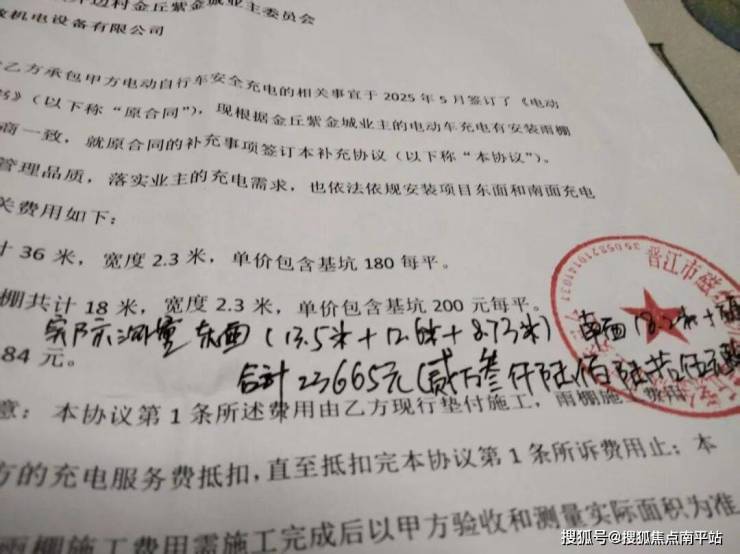 边村金丘紫金城业主委员会
机电设备有限公司
乙方承包甲方电动自行车安全充电的相关事宜于 2025 年 5 月签订了《电动
》（以下称“原合同”），现根据金丘紫金城业主的电动车充电有安装雨棚
商一致，就原合同的补充事项签订本补充协议（以下称“本协议”）。
管理品质，落实业主的充电需求，也依法依规安装项目东面和南面充电
关费用如下：
计 36 米，宽度 2.3 米，单价包含基坑 180 每平。
棚共计 18 米，宽度 2.3 米，单价包含基坑 200 元每平。
实际测量东面（13.5米＋12.6米＋8.73米）南面（8.2米＋
84 元。
合计 23665元（贰万叁仟陆佰陆拾伍元
意：本协议第 1 条所述费用由乙方现行垫付施工，雨棚施工费用
方的充电服务费抵扣，直至抵扣完本协议第 1 条所诉费用止；本
雨棚施工费用需施工完成后以甲方验收和测量实际面积为准
晋江市
搜狐号@搜狐焦点南平站